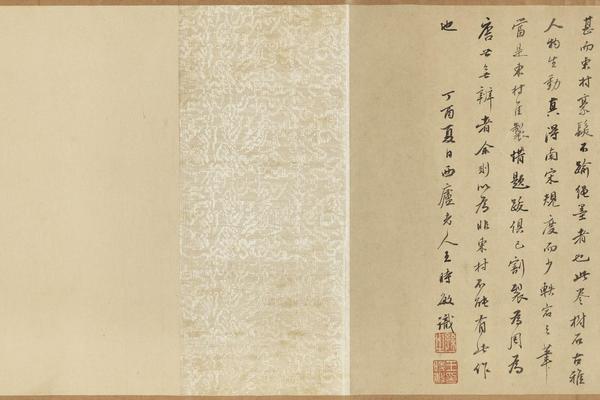 甚而東村豪髮不踰繩墨者也此卷樹石古雅
人物生動真得南宋規度而少軼宕之筆
當是東村佳製惜題跋俱已割裂為周為
唐世無辨者余則以為非東村不能有此作
也　丁酉夏日西廬老人王時敏識